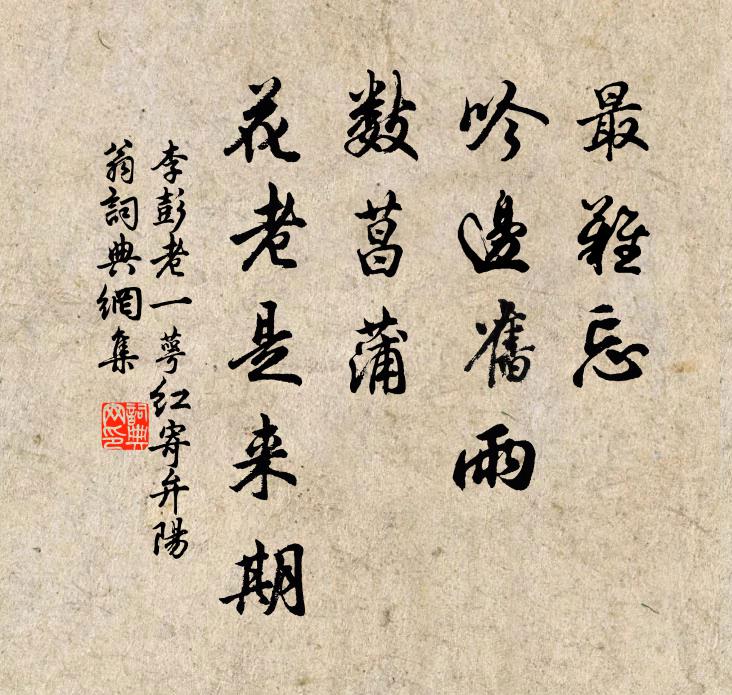 最難忘
吟邊舊雨
數菖蒲
花老是来期
李彭老一萼紅寄弁陽
翁詞典網集
詞典
网印